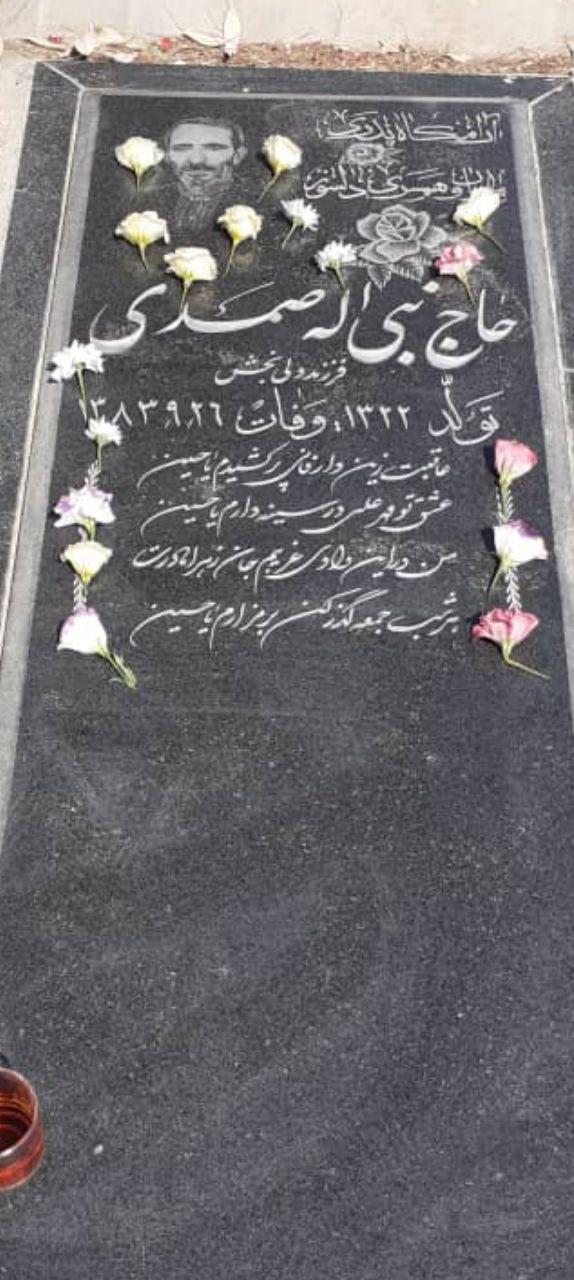 آرامگاه پدری
و همسری دلسوز
حاج نبی اله صمدی
فرزند ولی نجش
تولد ۱۳۲۲، وفات ۱۳۸۳٫۹٫۲۶
عاقبت زین دار فانی پر کشیدم یا حسین
عشق تو مهر علی در سینه دارم یا حسین
من در این وادی غریبم جان زهرا مادرت
هر شب جمعه گذر کن بر مزارم یا حسین